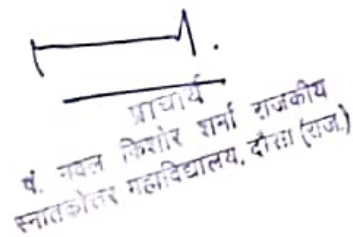 प्राचार्य
पं. नवल किशोर शर्मा राजकीय
स्नातकोत्तर महाविद्यालय, दौसा (राज.)